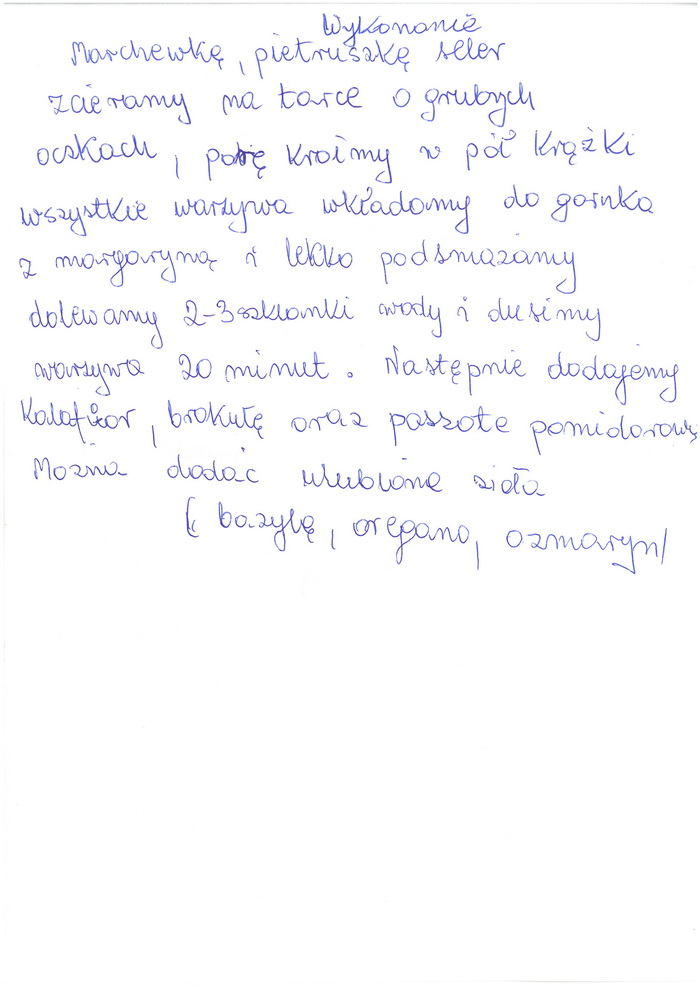 Wykonanie
Marchewkę, pietruszkę seler
zcieramy na tarce o grubych
oczkach, porę kroimy w pół krążki
wszystkie warzywa wkładamy do garnka
z margaryną i lekko podsmażamy
dolewamy 2-3 szklanki wody i dusimy
warzywa 20 minut. Następnie dodajemy
kalafior, brokułę oraz paszote pomidorową
Mozna dodać ulubione zioła
( bazylę, oregano, ozmaryn/